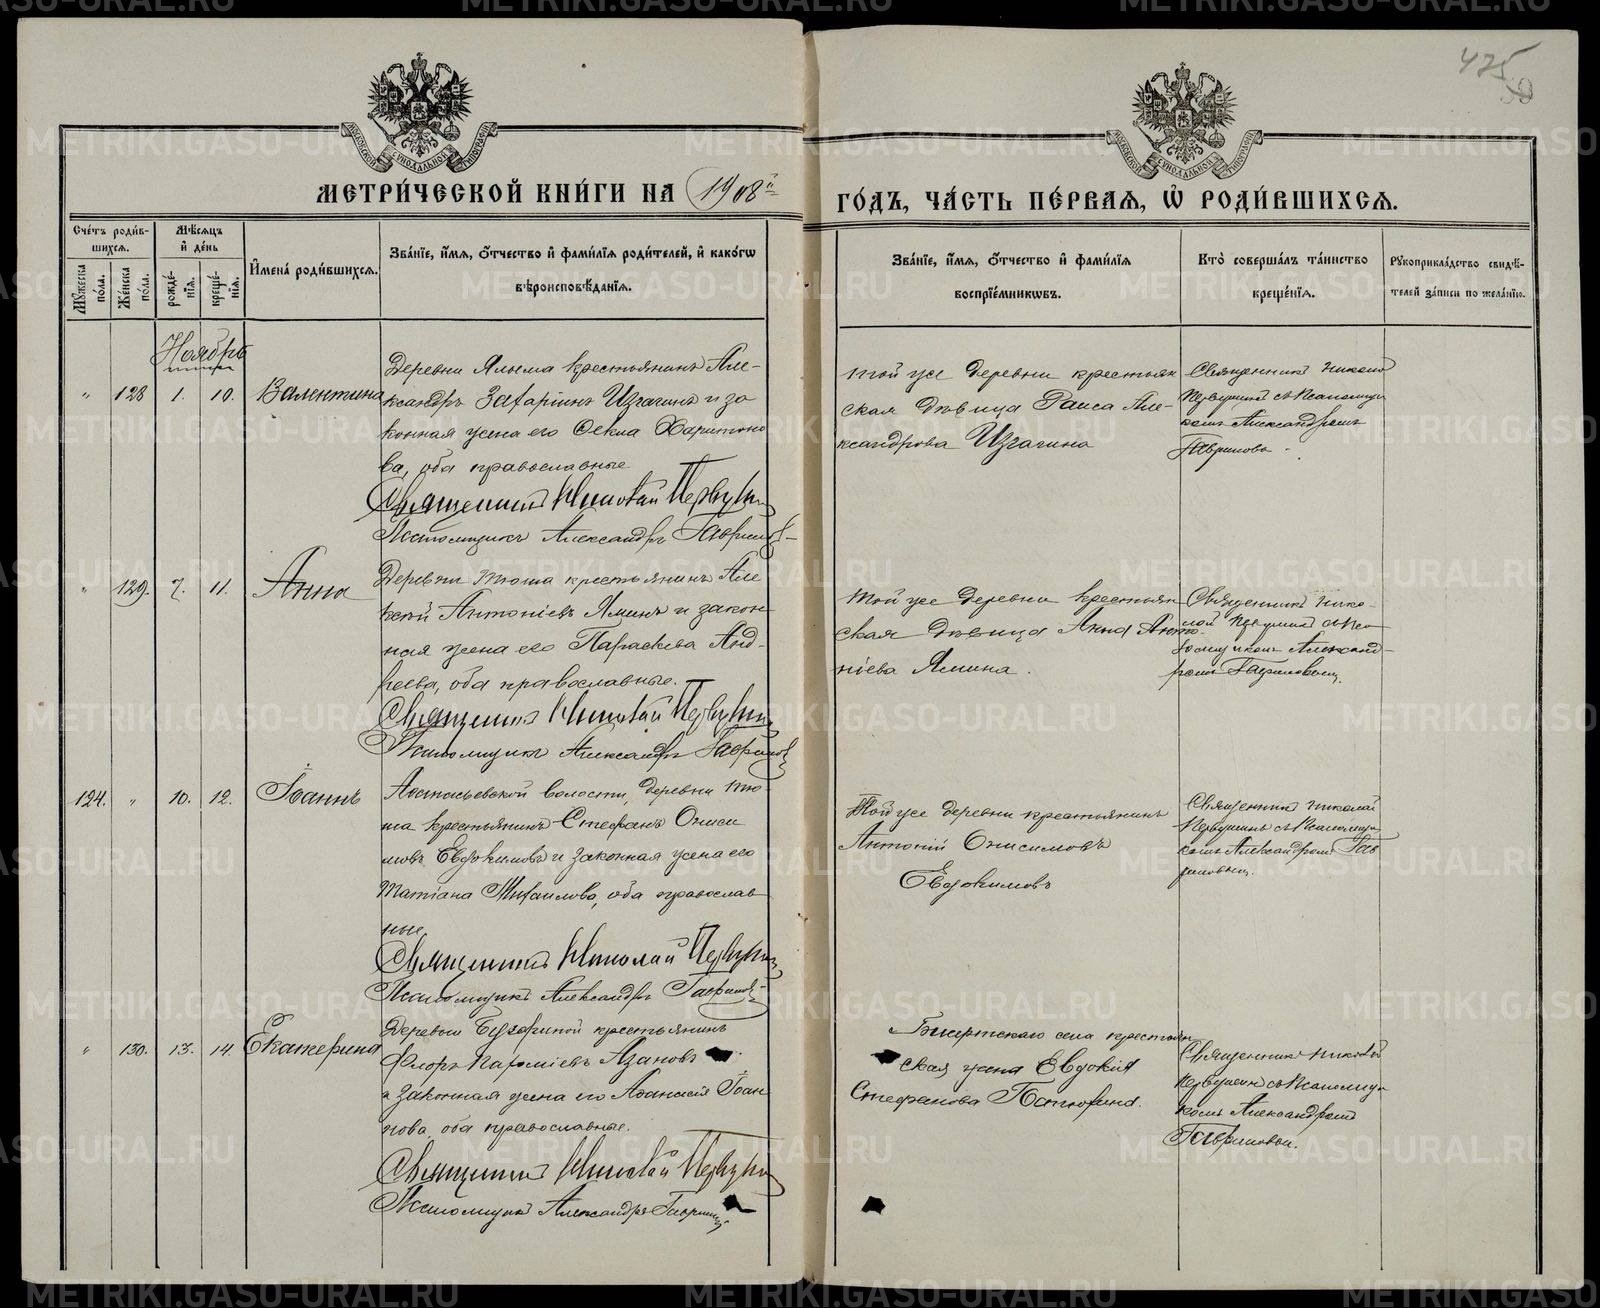 475
МЕТРИ́ЧЕСКОЙ КНИ́ГИ НА 1908 й
ГО́ДЪ, ЧА́СТЬ ПЕ́РВАѦ, Ѽ РОДИ́ВШИХСѦ.
Сче́тъ роди́вшихсѧ.
Мꙋжеска по́ла.
Же́нска по́ла.
Мѣ́сѧцъ и҆ де́нь
рожде́нїѧ.
креще́нїѧ.
И҆мена̀ роди́вшихсѧ.
Зва́нїе, и҆́мѧ, ѻ҆́тчество и҆ фами́лїѧ роди́телей, и҆ како́гѡ
вѣроисповѣ́данїѧ.
Зва́нїе, и҆́мѧ, ѻ҆́тчество и҆ фами́лїѧ
воспрїе́мникѡвъ.
Кто̀ соверша́лъ та́инство
креще́нїѧ.
Рꙋкоприкла́дство свидѣ́-
телей за́писи по жела́нїю.
Ноябрь
" 128 1. 10. Валентина
Деревни Ялыма крестьянинъ Але-
ксандръ Захаріинъ Изгагинъ и за
конная жена его Ѳекла Харитоно
ва, оба православные
Священникъ Николай Первушинъ
Псаломщикъ Александръ Гавриловъ
той же деревни крестьян
ская дѣвица Раиса Але-
ксандрова Изгагина
Священникъ Николай
Первушинъ съ Псаломщи
комъ Александромъ
Гавриловы
" 129. 7. 11. Анна
Деревни Тюша крестьянинъ Але
ксѣй Антоніевъ Яминъ и закон
ная жена его Параскева Анд-
реева, оба православные.
Священникъ Николай Первушинъ
Псаломщикъ Александръ Гавриловъ
той же деревни крестьян
ская дѣвица Анна Анто-
ніева Ямина.
Священникъ Нико-
лай Первушинъ съ Пса
ломщикомъ Александ-
ромъ Гавриловым.
124. " 10. 12. Іоаннъ
Аѳанасьевской волости, деревни Тю-
ша крестьянинъ Стефанъ Ониси
мовъ Евдокимовъ и законная жена его
Татіана Михаилова, оба православ
ные
Священникъ Николай Первушинъ
Псаломщикъ Александръ Гавриловъ
Той же деревни крестьянинъ
Антоній Онисимовъ
Евдокимовъ
Священникъ Николай
Первушинъ съ Псаломщи
комъ Александромъ Гав
риловым.
" 130. 13. 14. Екатерина
Деревни крестьянинъ
Флоръ Азановъ
и законная жена его Аѳанасія Іоан
нова, оба православные.
Священникъ Николай Первушинъ
Псаломщикъ Александръ Гавриловъ
Бисертскаго села крестьян
ская жена Евдокія
Стефанова
Священникъ Николай
Первушинъ съ Псаломщи
комъ Александромъ
Гавриловым.
METRIKI.GASO-URAL.RU